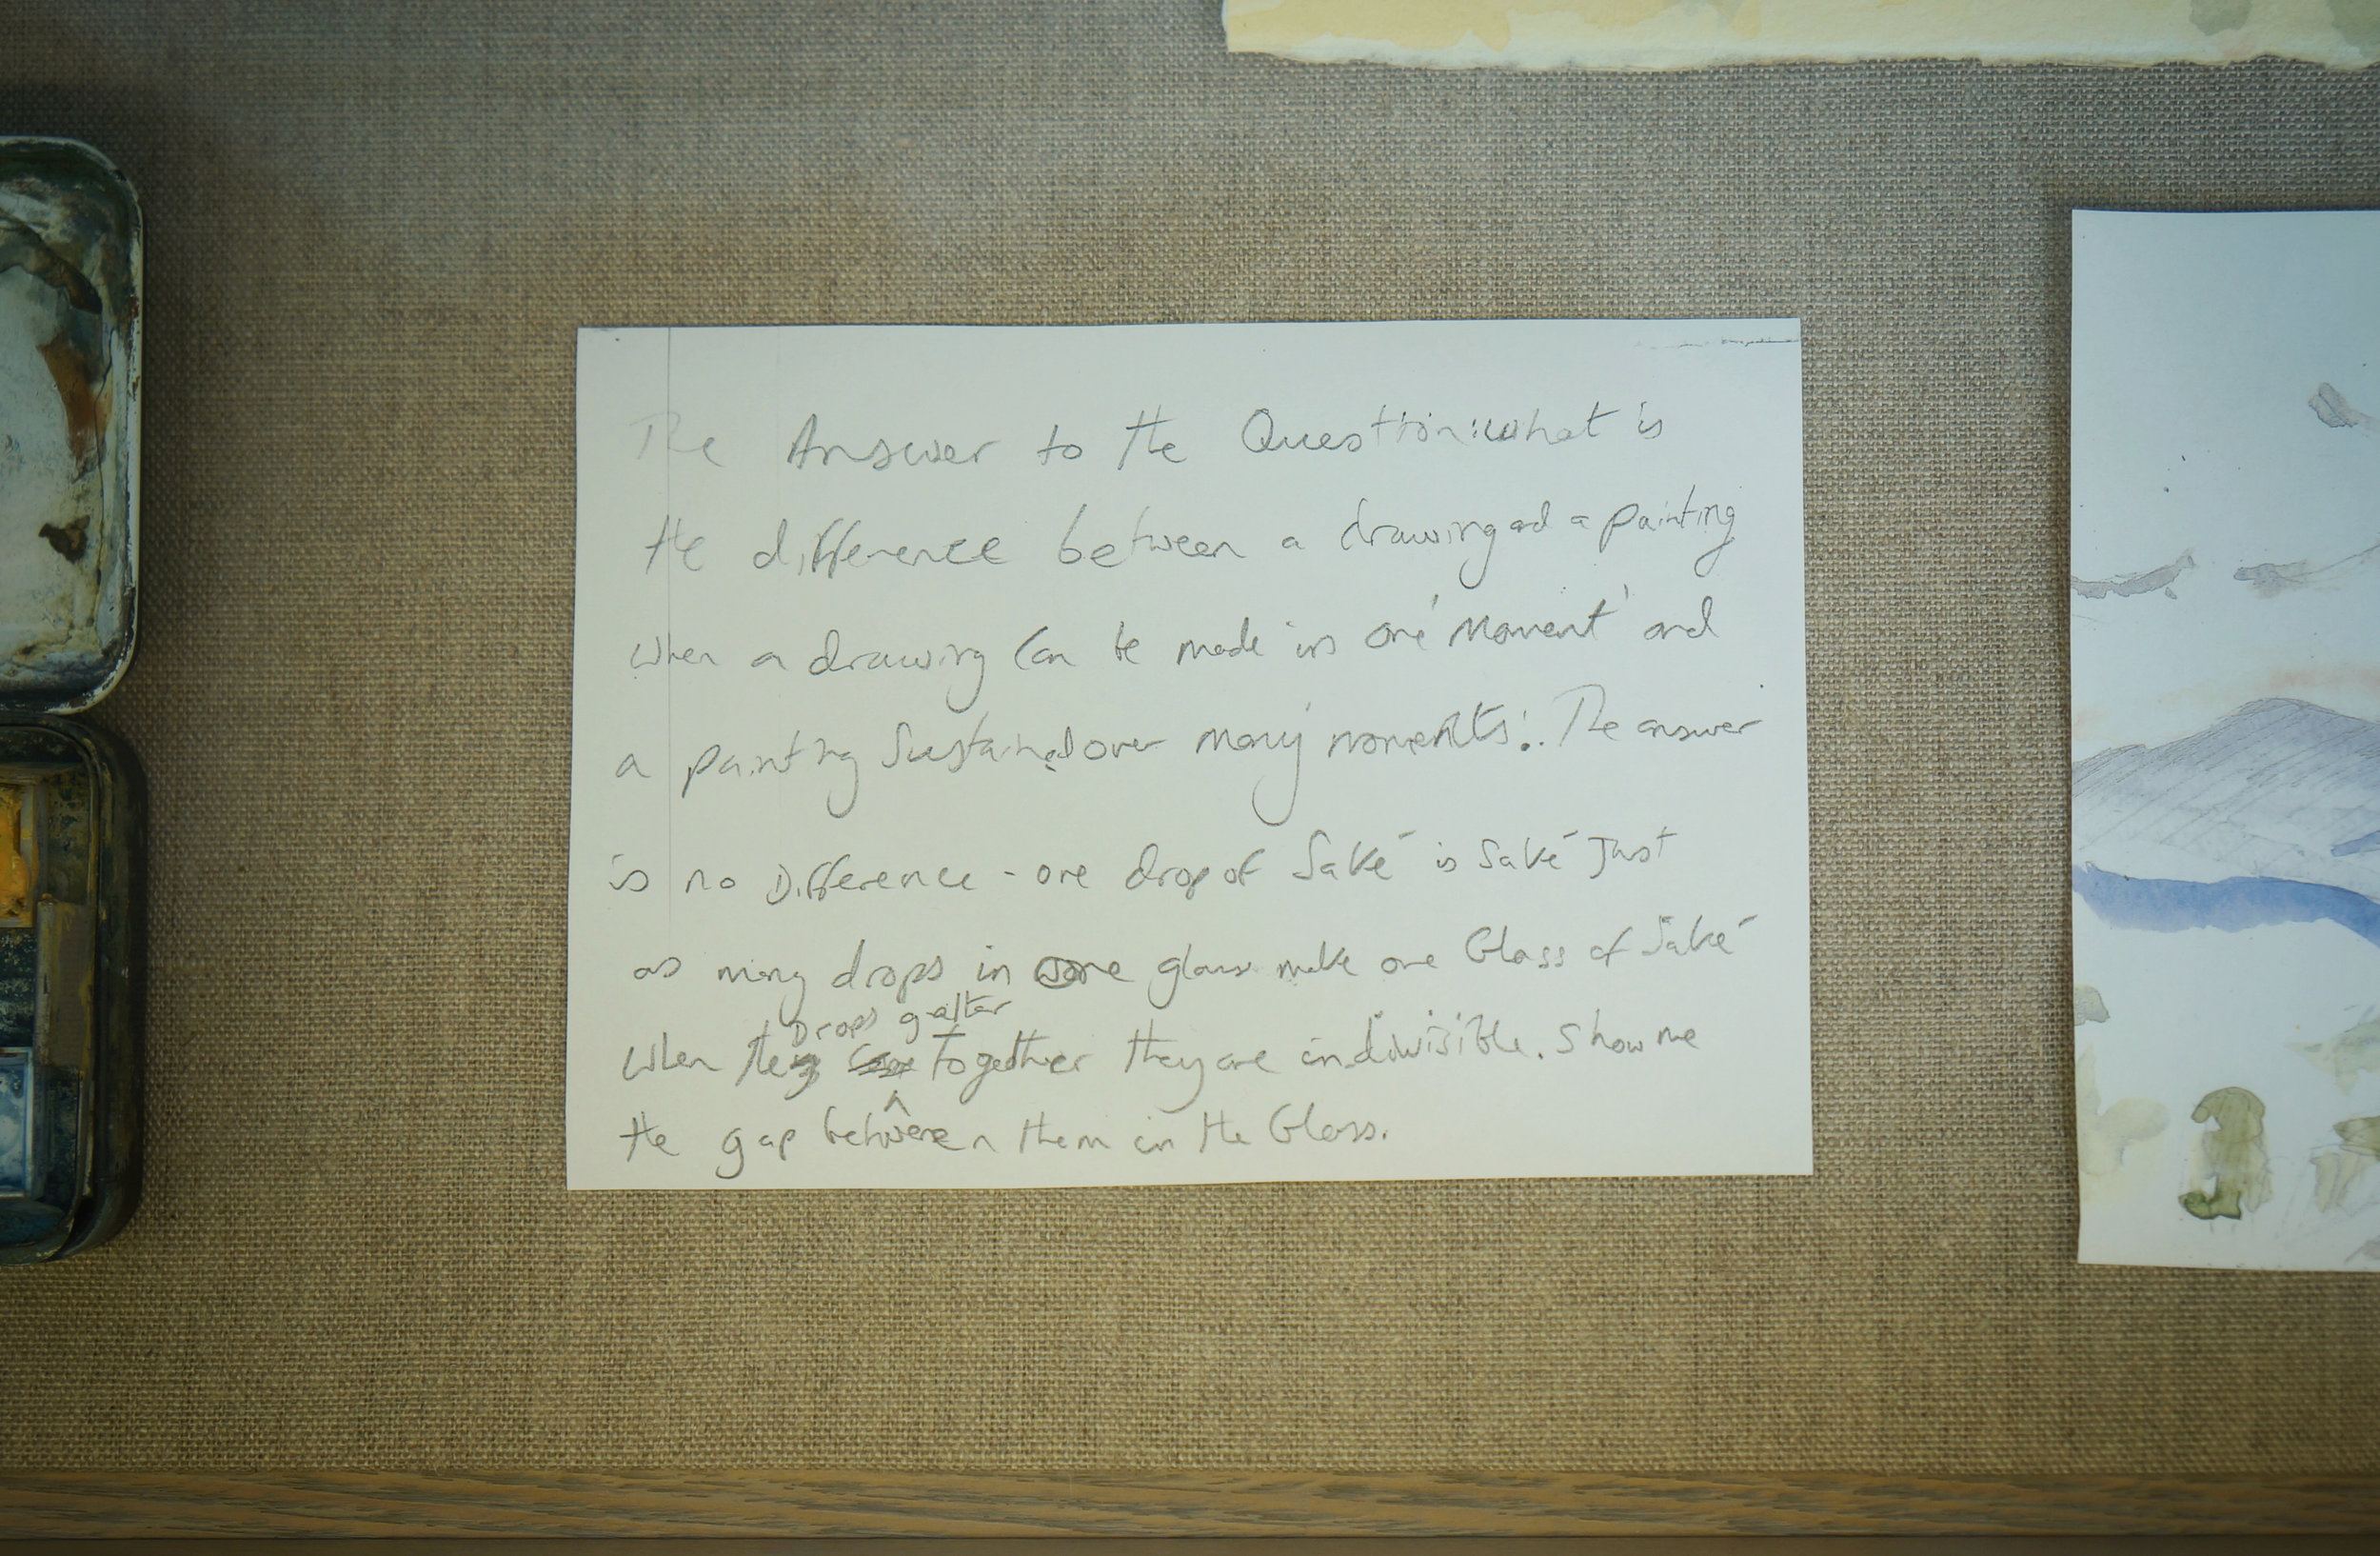 The Answer to the Question: what is
the difference between a drawing and a painting
when a drawing can be made in one 'moment' and
a painting sustained over many 'moments'. The answer
is no Difference - one drop of Saké is Saké Just
as many drops in one glass make one Glass of Saké
Drops gather
when the together they are indivisible. Show me
the gap between them in the Glass.